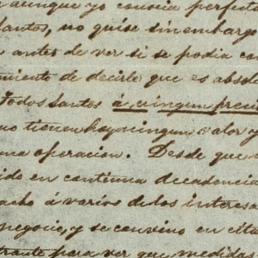 aunque yo conocia perfecta
Santos, no quise sin embargo
antes de ver si se podia con
miento de decirle que es absol
Todos Santos á ningun preci
no tienen hoy ningun valor y
una operacion. Desde que
ido en continua decadencia
acho á varios de los interesa
negocio, y se convino en cita
trante para ver que medidas